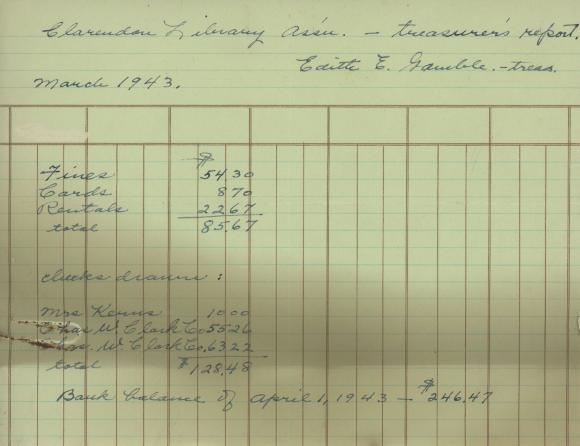 Clarendon Library Ass'n. - treasurer's report.
Edith E. Gamble. - treas.
March 1943.
$
Fines 54 30
Cards 8 70
Rentals 22 67
total 85.67
checks drawn :
Mrs Kerns 10 00
Chas W. Clark Co 55 26
Chas. W. Clark Co. 63 22
total $128.48
Bank balance of April 1, 1943 - $246.47